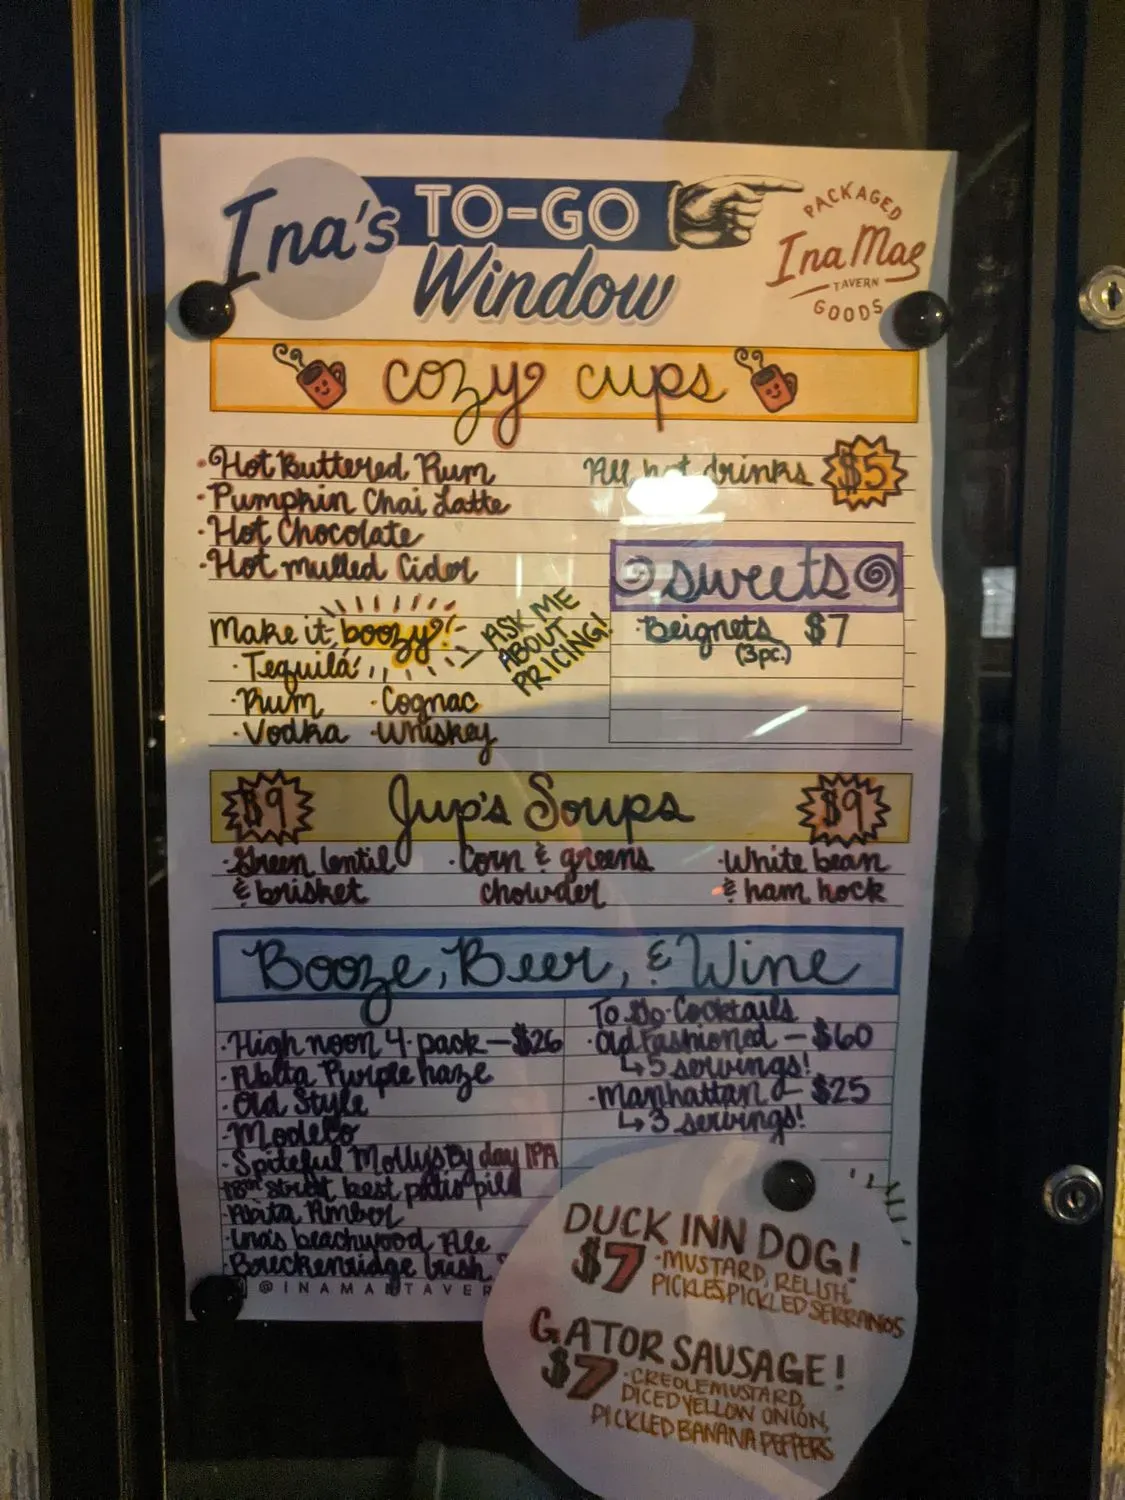 Ina's TO-GO
Window
PACKAGED
Ina Mae
TAVERN
GOODS
cozy cups
·Hot Buttered Rum
·Pumpkin Chai Latte
·Hot Chocolate
·Hot mulled Cider
All hot drinks $5
Make it boozy!
·Tequila
·Rum ·Cognac
·Vodka ·Whiskey
ASK ME
ABOUT
PRICING!
sweets
·Beignets $7
(3pc.)
$9 Jup's Soups $9
·Green lentil
& brisket
·Corn & greens
chowder
·White bean
& ham hock
Booze, Beer, & Wine
·High noon 4-pack—$26
·Abita Purple haze
·Old Style
·Modelo
·Spiteful Molly's By day IPA
18th street best patio pils
Abita Amber
·Ina's beachwood Ale
·Breckenridge
To Go Cocktails
·Old Fashioned — $60
↳5 servings!
·Manhattan — $25
↳3 servings!
@INAMAETAVER
DUCK INN DOG!
$7 ·MUSTARD, RELISH,
PICKLES, PICKLED SERRANOS
GATOR SAUSAGE!
$7 ·CREOLE MUSTARD,
DICED YELLOW ONION,
PICKLED BANANA PEPPERS